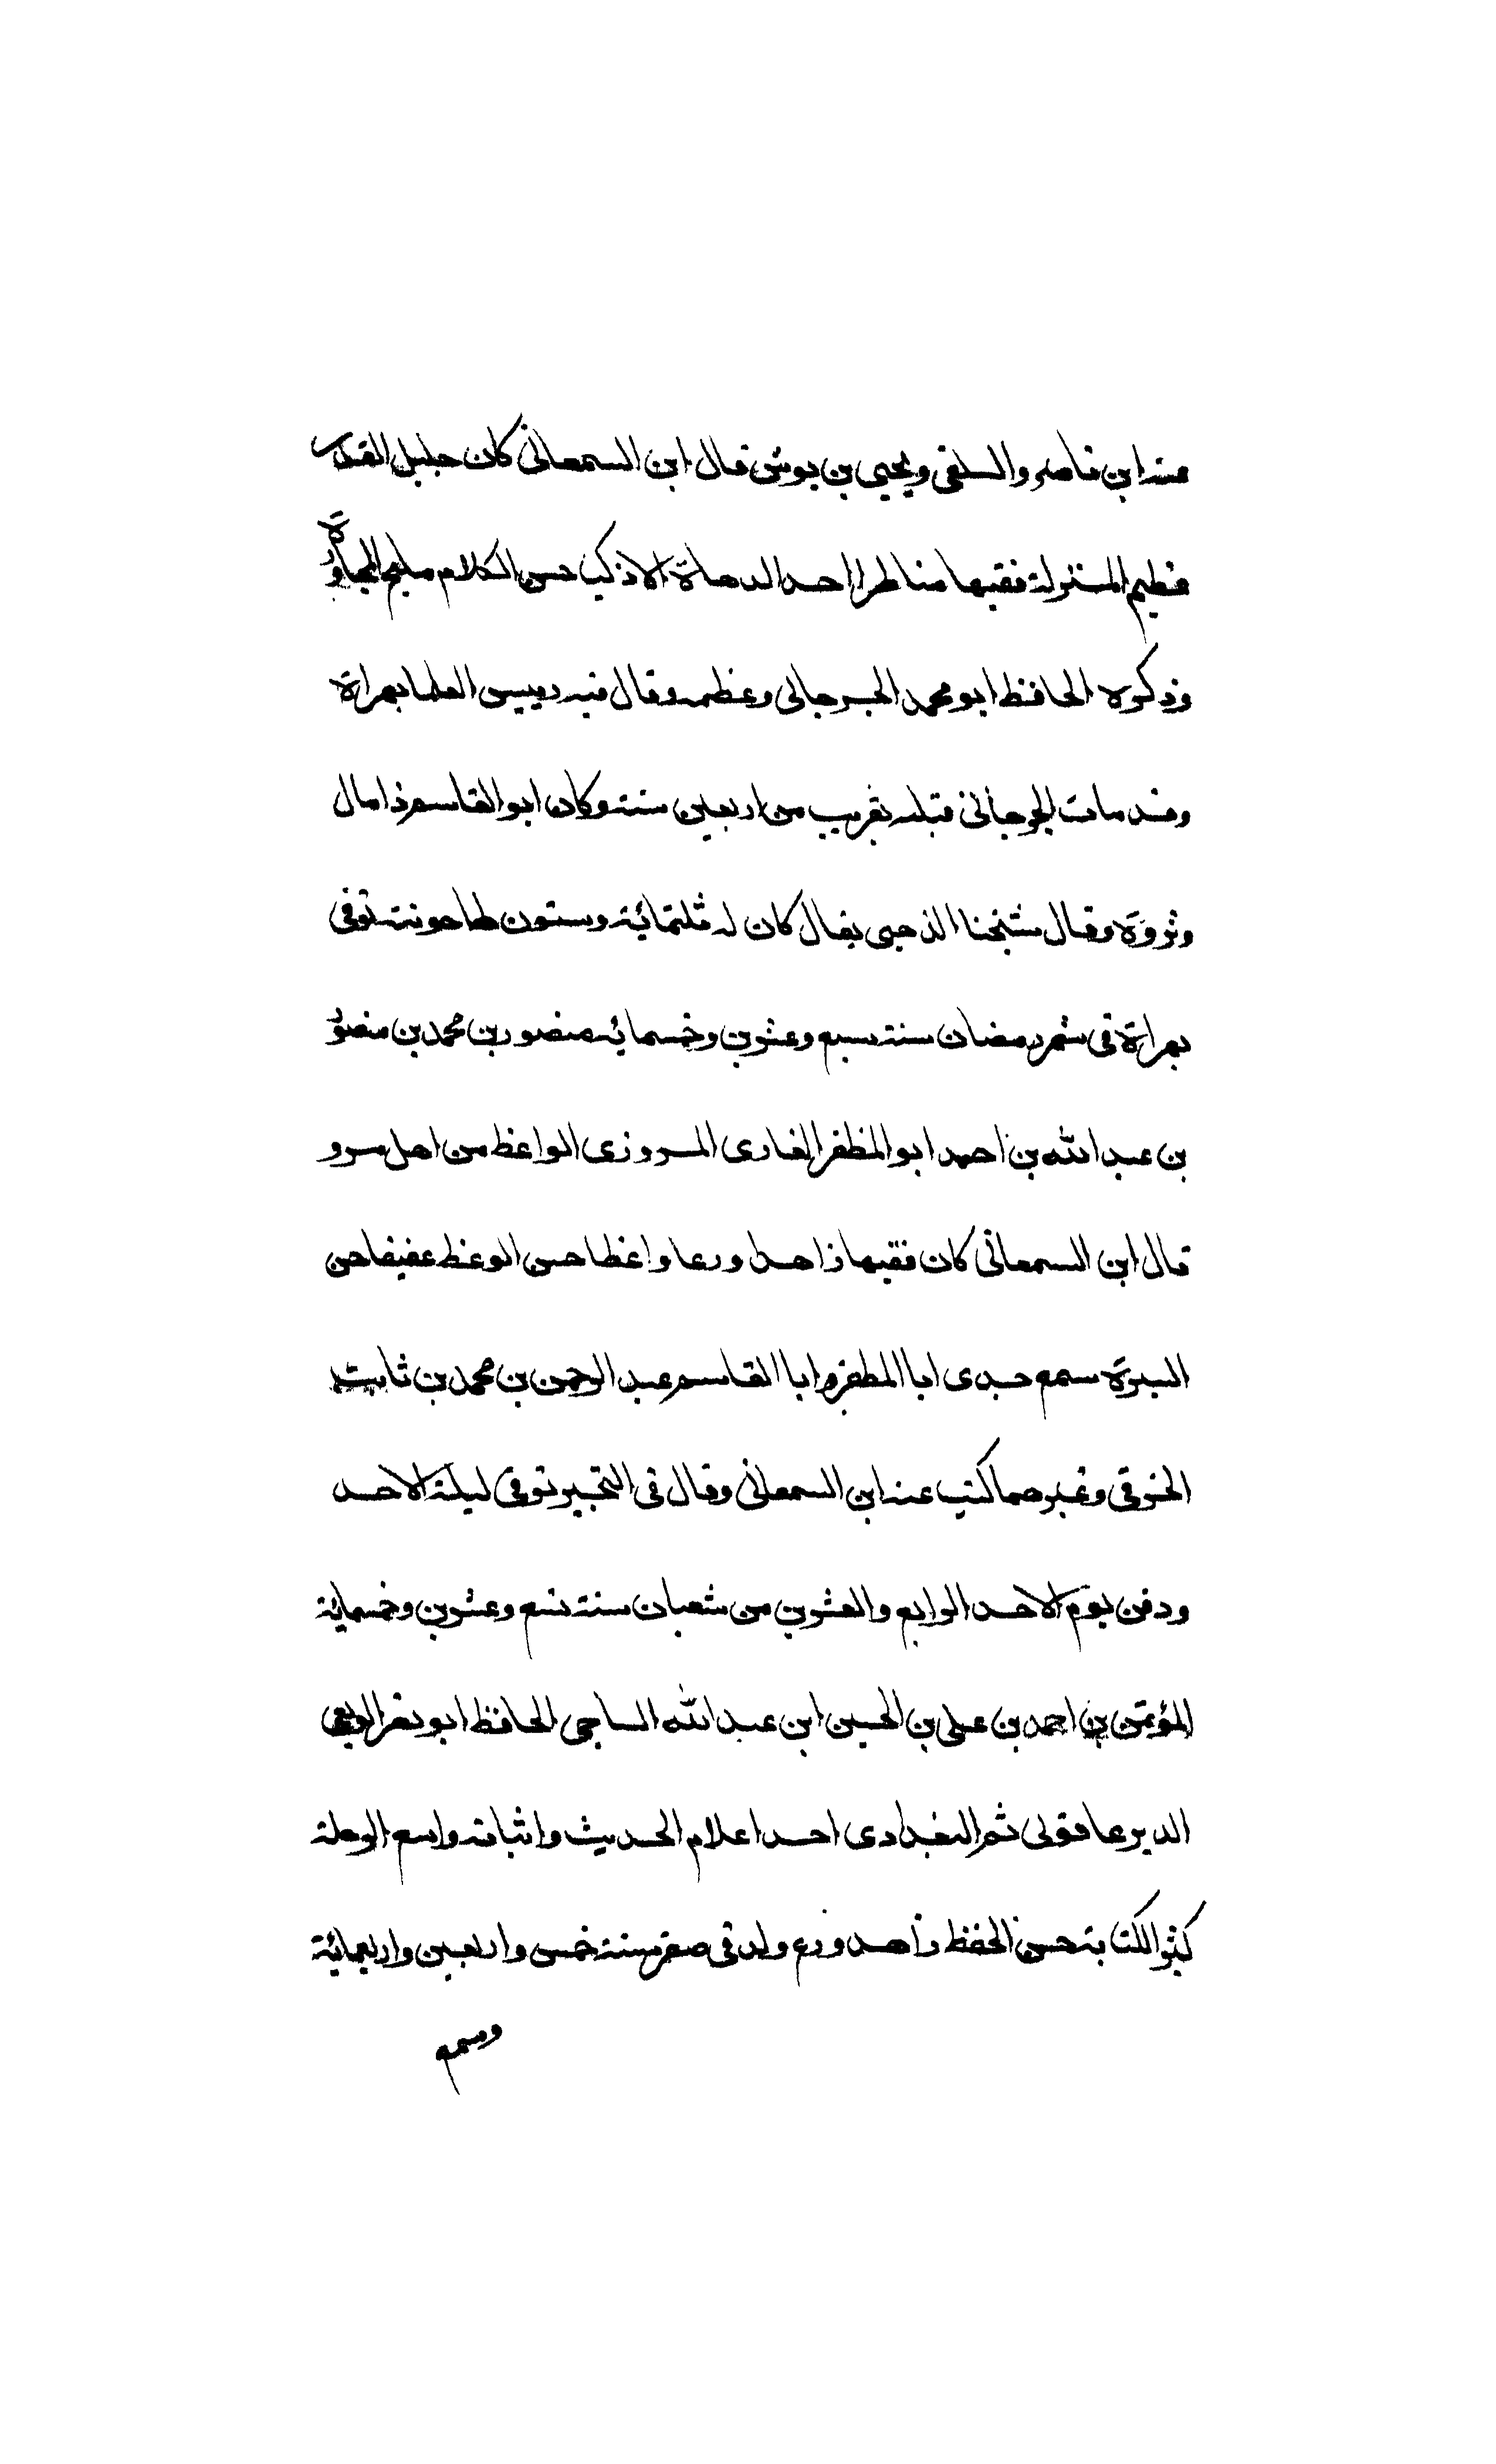 عنه ابن ناصر والسلفى ويحيى بن بوش قال ابن السمعانى كان جليل القدر
عظيم المنزلة فقيها مناظرا احد الدهاة الاذكيا حسن الكلام مليح المجاورة
وذكره الحافظ ابو محمد الجرجانى وعظمه وقال فيه رييس العلما بهراة
وقد مات الجرجانى قبله بقريب من اربعين سنة وكان ابو القاسم ذا مال
وثروة وقال شيخنا الذهبى يقال كان له ثلثمائة وستون طاحونة توفى
بهراة فى شهر رمضان سنة سبع وعشرين وخمسمائه منصور بن محمد بن منصور
بن عبد الله بن احمد ابو المظفر الغازى المروزى الواعظ من اهل مرو
قال ابن السمعانى كان فقيها زاهدا ورعا واعظا حسن الوعظ عفيفا حسن
السيرة سمع جدى ابا المظفر وابا القاسم عبد الرحمن بن محمد بن ثابت
الخرقى وغيرهما كتب عنه ابن السمعانى وقال فى التحبير توفى ليلة الاحد
ودفن يوم الاحد الرابع والعشرين من شعبان سنة تسع وعشرين وخمسماية
المؤتمن بن احمد بن على بن الحسين ابن عبد الله الساجى الحافظ ابو نصر الربعى
الديرعاقولى ثم البغدادى احد اعلام الحديث واثباته واسع الرحلة
كثير الكتابة حسن الحفظ زاهد ورع ولد فى صفر سنة خمس واربعين واربعمائة
وسمع